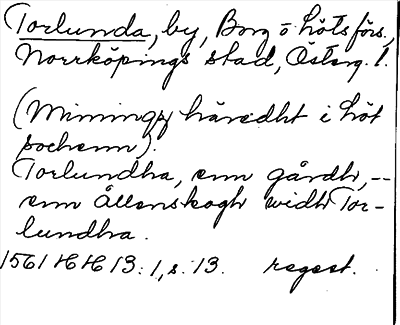 Torlunda, by, Borg o Löts förs.,
Norrköpings stad, Österg. l.
(Mimingx häredht i Löt
sochenn).
Torlundha, enn gårdh, --
enn Ållonskogh widh Tor-
lundha.
1561 HH B: 1, s. 13. regest.